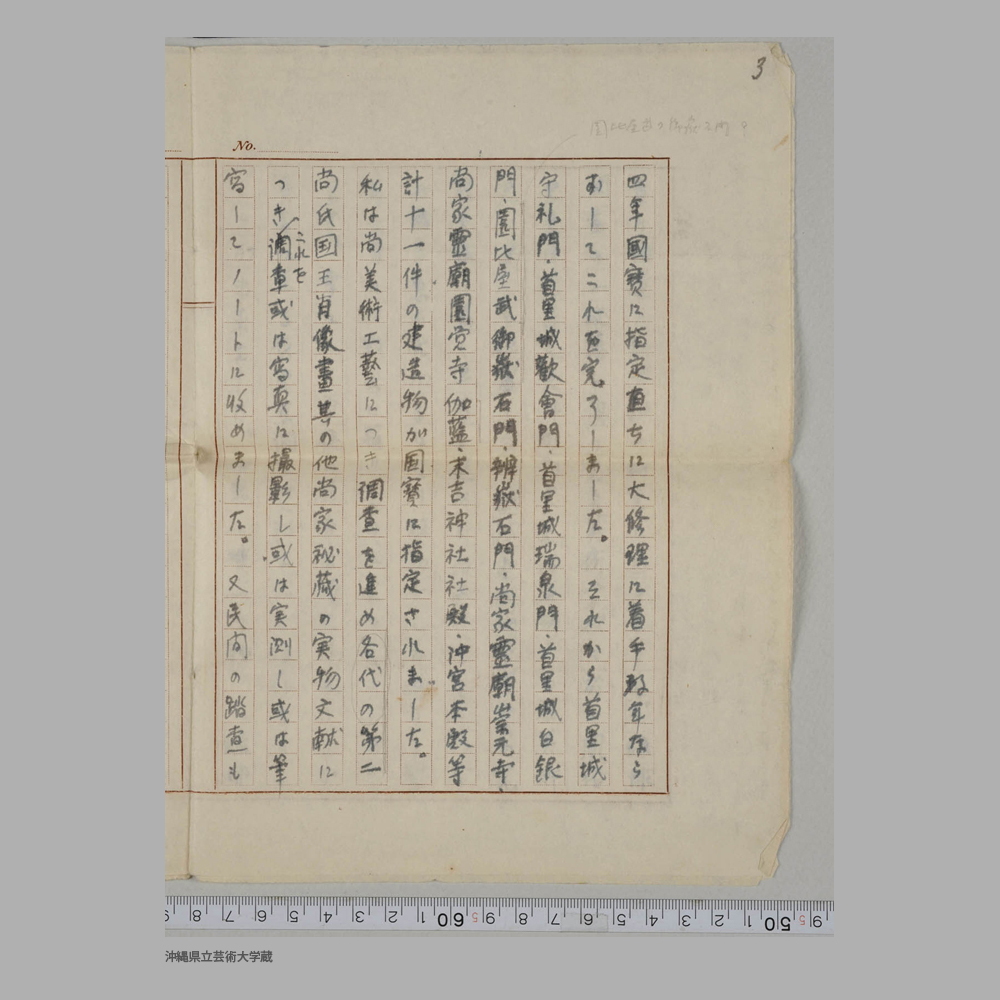 3
No.
四年國寶に指定直ちに大修理に着手数年なら
ずしてこれを完了しました。それから首里城
守礼門・首里城歓會門・首里城瑞泉門・首里城白銀
門・園比屋武御嶽石門・辨嶽石門・尚家靈廟崇元寺・
尚家靈廟園覚寺伽藍・末吉神社社殿・沖宮本殿等
計十一件の建造物が国寶に指定されました。
私は尚美術工藝につき調査を進め各代の第二
尚氏国王肖像畫其の他尚家秘蔵の実物文献に
つき、これを調査或は寫真に撮影し或は実測し或は筆
寫してノートに收めました。又民间の踏査も
9 8 7 6 5 4 3 2 1 60 9 8 7 6 5 4 3 2 1 50 9
沖縄県立芸術大学蔵